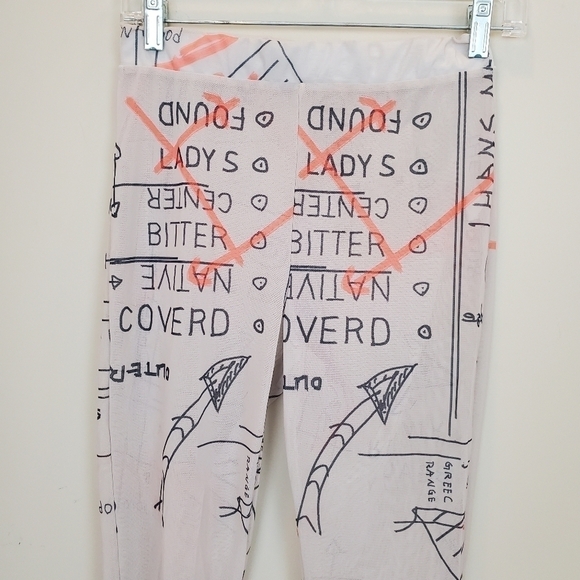 FOUND FOUND
LADY S LADY S
CENTER CENTER
BITTER BITTER
NATIVE NATIVE
COVERD OVERD
OUTER
GREEC
RANGE
RANGE
HANS